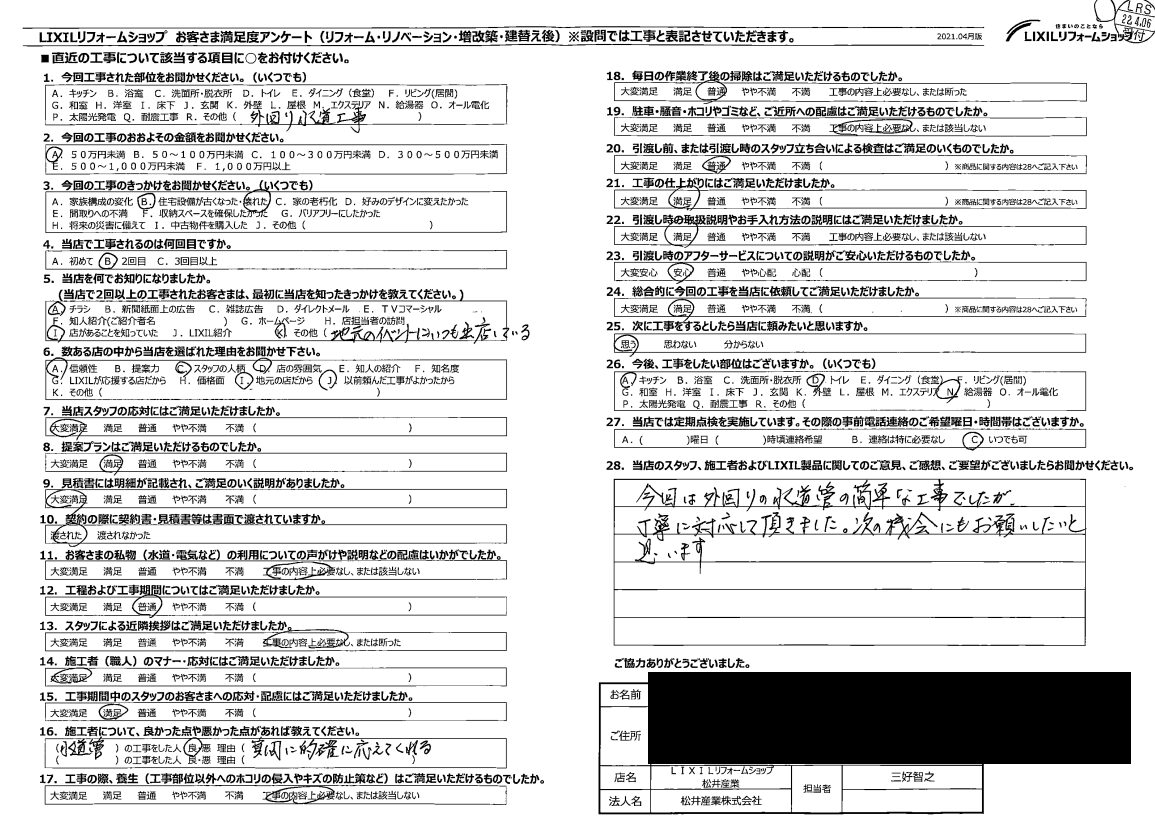 LRS
22.4.06
受付
LIXILリフォームショップ お客さま満足度アンケート（リフォーム・リノベーション・増改築・建替え後）※設問では工事と表記させていただきます。
2021.04月版
住まいのことなら
LIXILリフォームショップ
■直近の工事について該当する項目に○をお付けください。
1．今回工事された部位をお聞かせください。（いくつでも）
A．キッチン B．浴室 C．洗面所・脱衣所 D．トイレ E．ダイニング（食堂） F．リビング(居間)
G．和室 H．洋室 I．床下 J．玄関 K．外壁 L．屋根 M．エクステリア N．給湯器 O．オール電化
P．太陽光発電 Q．耐震工事 R．その他（ 外回り水道工事 ）
2．今回の工事のおおよその金額をお聞かせください。
A．５０万円未満 B．５０～１００万円未満 C．１００～３００万円未満 D．３００～５００万円未満
E．５００～１,０００万円未満 F．１,０００万円以上
3．今回の工事のきっかけをお聞かせください。（いくつでも）
A．家族構成の変化 B．住宅設備が古くなった・壊れた C．家の老朽化 D．好みのデザインに変えたかった
E．間取りへの不満 F．収納スペースを確保したかった G．バリアフリーにしたかった
H．将来の災害に備えて I．中古物件を購入した J．その他（ ）
4．当店で工事されるのは何回目ですか。
A．初めて B．2回目 C．3回目以上
5．当店を何でお知りになりましたか。
(当店で2回以上の工事されたお客さまは、最初に当店を知ったきっかけを教えてください。)
A．チラシ B．新聞紙面上の広告 C．雑誌広告 D．ダイレクトメール E．TVコマーシャル
F．知人紹介(ご紹介者名 ) G．ホームページ H．店担当者の訪問
I．店があることを知っていた J．LIXIL紹介 K．その他（地元のイベントにいつも出店している
6．数ある店の中から当店を選ばれた理由をお聞かせ下さい。
A．信頼性 B．提案力 C．スタッフの人柄 D．店の雰囲気 E．知人の紹介 F．知名度
G．LIXILが応援する店だから H．価格面 I．地元の店だから J．以前頼んだ工事がよかったから
K．その他（ ）
7．当店スタッフの応対にはご満足いただけましたか。
大変満足 満足 普通 やや不満 不満（ ）
8．提案プランはご満足いただけるものでしたか。
大変満足 満足 普通 やや不満 不満（ ）
9．見積書には明細が記載され、ご満足のいく説明がありましたか。
大変満足 満足 普通 やや不満 不満（ ）
10．契約の際に契約書・見積書等は書面で渡されていますか。
渡された 渡されなかった
11．お客さまの私物（水道・電気など）の利用についての声がけや説明などの配慮はいかがでしたか。
大変満足 満足 普通 やや不満 不満 工事の内容上必要なし、または該当しない
12．工程および工事期間についてはご満足いただけましたか。
大変満足 満足 普通 やや不満 不満（ ）
13．スタッフによる近隣挨拶はご満足いただけましたか。
大変満足 満足 普通 やや不満 不満 工事の内容上必要なし、または断った
14．施工者（職人）のマナー・応対にはご満足いただけましたか。
大変満足 満足 普通 やや不満 不満（ ）
15．工事期間中のスタッフのお客さまへの応対・配慮にはご満足いただけましたか。
大変満足 満足 普通 やや不満 不満（ ）
16．施工者について、良かった点や悪かった点があれば教えてください。
（水道管 ）の工事をした人 良・悪 理由（ 質問に的確に応えてくれる
（ ）の工事をした人 良・悪 理由（ ）
17．工事の際、養生（工事部位以外へのホコリの侵入やキズの防止策など）はご満足いただけるものでしたか。
大変満足 満足 普通 やや不満 不満 工事の内容上必要なし、または該当しない
18．毎日の作業終了後の掃除はご満足いただけるものでしたか。
大変満足 満足 普通 やや不満 不満 工事の内容上必要なし、または断った
19．駐車・騒音・ホコリやゴミなど、ご近所への配慮はご満足いただけるものでしたか。
大変満足 満足 普通 やや不満 不満 工事の内容上必要なし、または該当しない
20．引渡し前、または引渡し時のスタッフ立ち合いによる検査はご満足のいくものでしたか。
大変満足 満足 普通 やや不満 不満（ ）※商品に関する内容は28へご記入下さい
21．工事の仕上がりにはご満足いただけましたか。
大変満足 満足 普通 やや不満 不満（ ）※商品に関する内容は28へご記入下さい
22．引渡し時の取扱説明やお手入れ方法の説明にはご満足いただけましたか。
大変満足 満足 普通 やや不満 不満 工事の内容上必要なし、または該当しない
23．引渡し時のアフターサービスについての説明がご安心いただけるものでしたか。
大変安心 安心 普通 やや心配 心配（ ）
24．総合的に今回の工事を当店に依頼してご満足いただけましたか。
大変満足 満足 普通 やや不満 不満（ ）※商品に関する内容は28へご記入下さい
25．次に工事をするとしたら当店に頼みたいと思いますか。
思う 思わない 分からない
26．今後、工事をしたい部位はございますか。（いくつでも）
A．キッチン B．浴室 C．洗面所・脱衣所 D．トイレ E．ダイニング（食堂） F．リビング(居間)
G．和室 H．洋室 I．床下 J．玄関 K．外壁 L．屋根 M．エクステリア N．給湯器 O．オール電化
P．太陽光発電 Q．耐震工事 R．その他（ ）
27．当店では定期点検を実施しています。その際の事前電話連絡のご希望曜日・時間帯はございますか。
A．（ )曜日（ )時頃連絡希望 B．連絡は特に必要なし C．いつでも可
28．当店のスタッフ、施工者およびLIXIL製品に関してのご意見、ご感想、ご要望がございましたらお聞かせください。
今回は外回りの水道管の簡単な工事でしたが、
丁寧に対応して頂きました。次の機会にもお願いしたいと
思います
ご協力ありがとうございました。
お名前
ご住所
店名
ＬＩＸＩＬリフォームショップ
松井産業
担当者
三好智之
法人名
松井産業株式会社